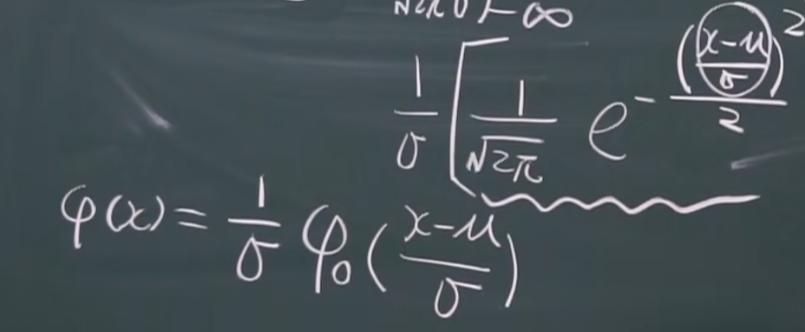 √2π σ ∫-∞
1/σ [ 1/√2π e^-((x-μ)/σ)²/2
φ(x) = 1/σ φ₀((x-μ)/σ)